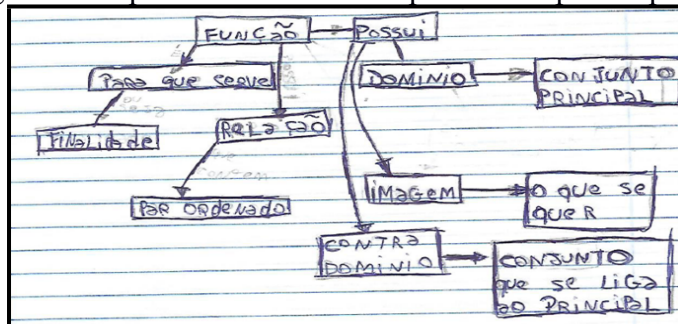 FUNCÃO
POSSUI
Para que serve
DOMINIO
CONJUNTO
PRINCIPAL
Finalidade
RELAÇÃO
PAR ORDENADO
IMAGEM
O QUE SE
QUER
CONTRA
DOMINIO
CONJUNTO
que SE LIGA
AO PRINCIPAL